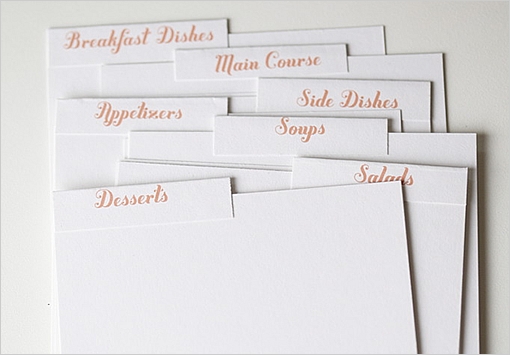 Breakfast Dishes
Main Course
Side Dishes
Appetizers
Soups
Salads
Desserts